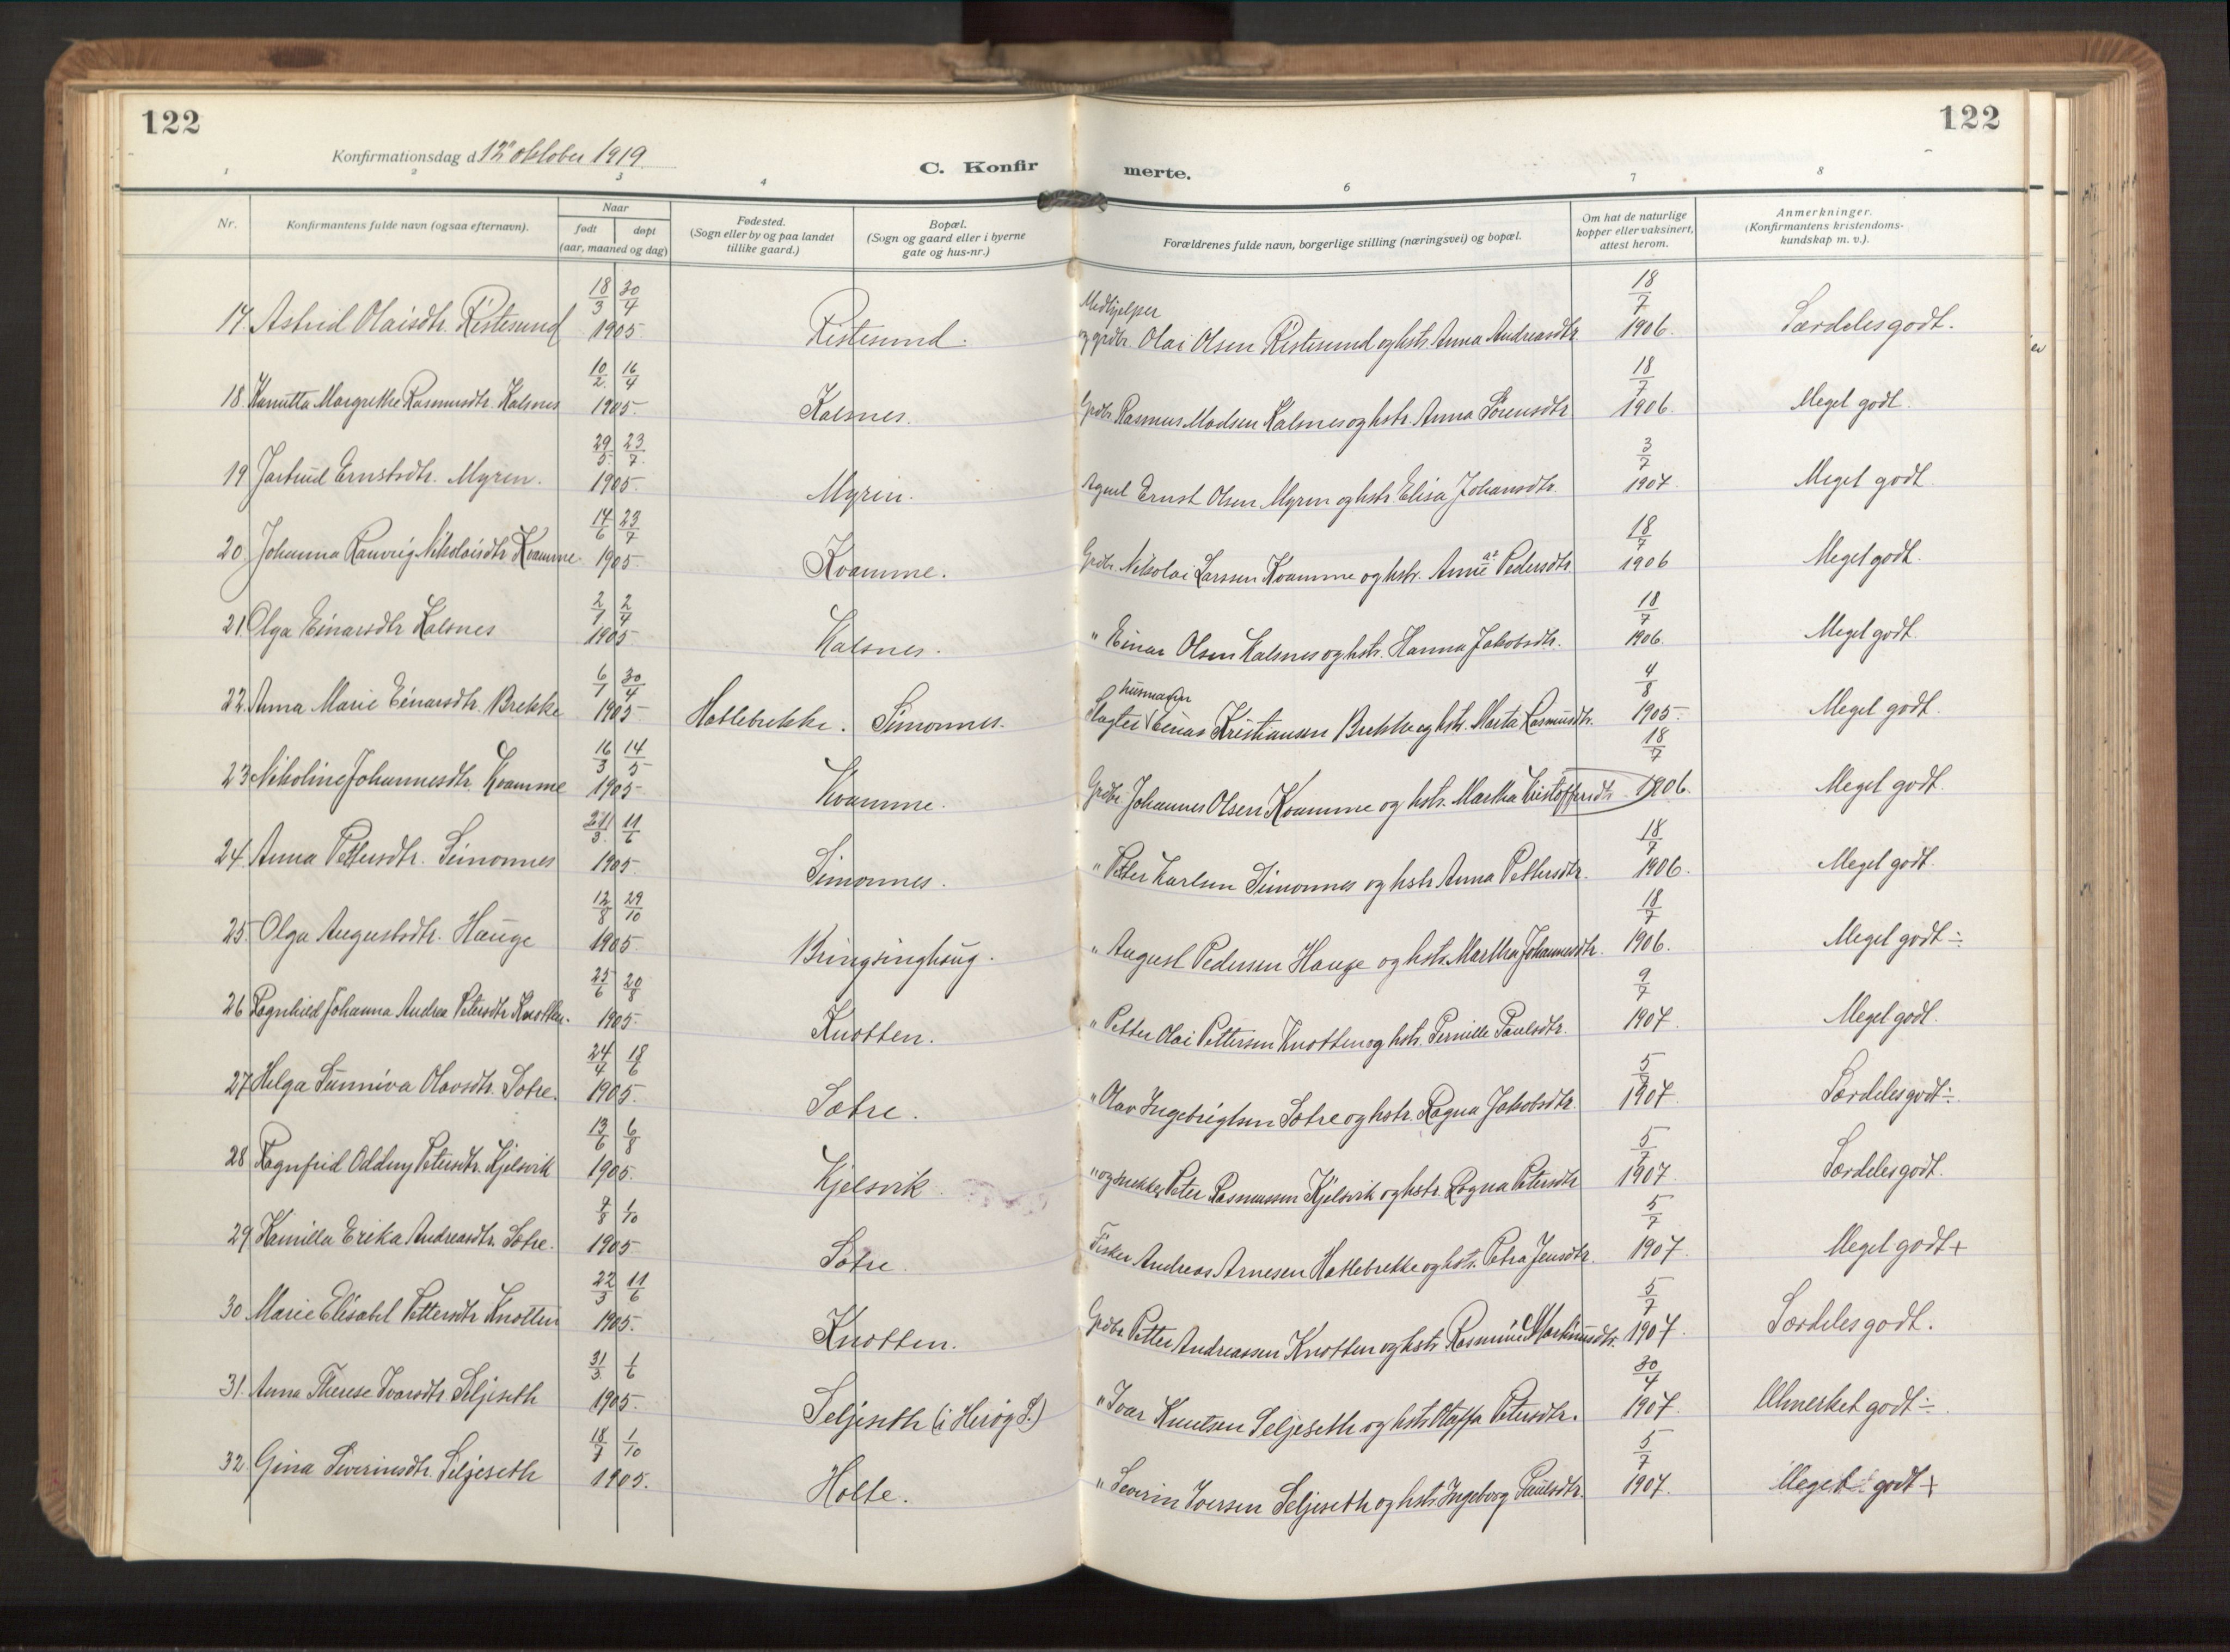 122
122
Konfirmationsdag d. 12te oktober 1919.
C. Konfir merte.
1 2 3 4 6 7 8
Nr.
Konfirmantens fulde navn (ogsaa efternavn).
Naar
født døpt
(aar, maaned og dag)
Fødested.
(Sogn eller by og paa landet
tillike gaard.)
Bopæl.
(Sogn og gaard eller i byerne
gate og hus-nr.)
Forældrenes fulde navn, borgerlige stilling (næringsvei) og bopæl.
Om hat de naturlige
kopper eller vaksinert,
attest herom.
Anmerkninger.
(Konfirmantens kristendoms-
kundskap m. v.).
18/3 30/4 Medhjelper 18/7
17. Astrid Olaisdtr. Ristesund 1905. Ristesund. og grdbr. Olai Olsen Ristesund og hstr. Anna Andreasdtr. 1906. Særdeles godt.
10/2 16/4 18/7
18. Margrethe Rasmusdtr. Kalsnes 1905. Kalsnes. Grdbr. Rasmus Madsen Kalsnes og hstr. Anna Sörensdtr. 1906. Meget godt.
29/5 23/7 3/7
19. Jartrud Ernstsdtr. Myren. 1905. Myrin. Agent Ernst Olsen Myren og hstr. Elisa Johansdtr. 1907. Meget godt.
14/6 23/7 18/7
20. Johanna Ranveig Nikolaisdtr. Kvamme 1905. Kvamme. Grdbr. Nikolai Larssen Kvamme og hstr. Anne Pedersdtr. 1906 Meget godt.
2/1 2/4 18/7
21. Olga Einarsdtr. Kalsnes 1905. Kalsnes. " Einar Olsen Kalsnes og hstr. Hanna Jakobsdtr. 1906. Meget godt.
6/1 30/4 husmann 4/8
22. Anna Marie Einarsdtr. Brekke 1905 Hatlebrekke. Simonnes. Slagter Einar Kristiansen Brekke og hstr. Marta Rasmusdtr. 1905. Meget godt.
16/3 14/5 18/7
23. Nikoline Johannesdtr. Kvamme 1905 Kvamme. Grdbr. Johannes Olsen Kvamme og hstr. Martha Kristoffersdtr. 1906. Meget godt.
11/6 18/7
24. Anna Pettersdtr. Simonnes 1905. Simonnes. " Petter Karlsen Simonnes og hstr. Anna Pettersdtr. 1906. Meget godt.
12/8 29/10 18/7
25. Olga Augustsdtr. Hauge 1905. Bringsinghaug. " August Pedersen Hauge og hstr. Martha Johannesdtr. 1906. Meget godt ÷
25/6 20/8 9/7
26 Ragnhild Johanna Andrea Petersdtr. Knotten. 1905. Knotten. " Petter Olai Pettersen Knotten og hstr. Pernille Paulsdtr. 1907. Meget godt.
24/4 18/6 5/7
27. Helga Sunniva Olavsdtr. Sætre. 1905. Sætre. " Olav Ingebrigtsen Sætre og hstr. Ragna Jakobsdtr. 1907. Særdeles godt ÷
13/6 6/8 5/7
28 Ragnfrid Oddny Petersdtr. Kjelsvik 1905. Kjelsvik. " og snekker Peter Rasmussen Kjelsvik og hstr. Ragna Petersdtr. 1907. Særdeles godt.
7/8 1/10 5/7
29. Kamilla Erika Andreasdtr. Sætre. 1905. Sætre. Fisker Andreas Arnesen Hatlebrekke og hstr. Petra Jensdtr. 1907. Meget godt +
22/3 11/6 5/7
30. Marie Elisabet Pettersdtr. Knotten 1905. Knotten. Grdbr. Petter Andreassen Knotten og hstr. Rasmine Markusdtr. 1907. Særdeles godt.
31/3 1/6 30/4
31. Anna Therese Ivarsdtr. Seljeseth 1905. Seljeseth (i Herøy S.) " Ivar Knutsen Seljeseth og hstr. Petersdtr. 1907. Utmerket godt ÷
18/7 1/10 5/7
32. Gina Severinsdtr. Seljeseth 1905. Holte. " Severin Iversen Seljeseth og hstr. Ingeborg Paulsdtr. 1907. Meget godt +